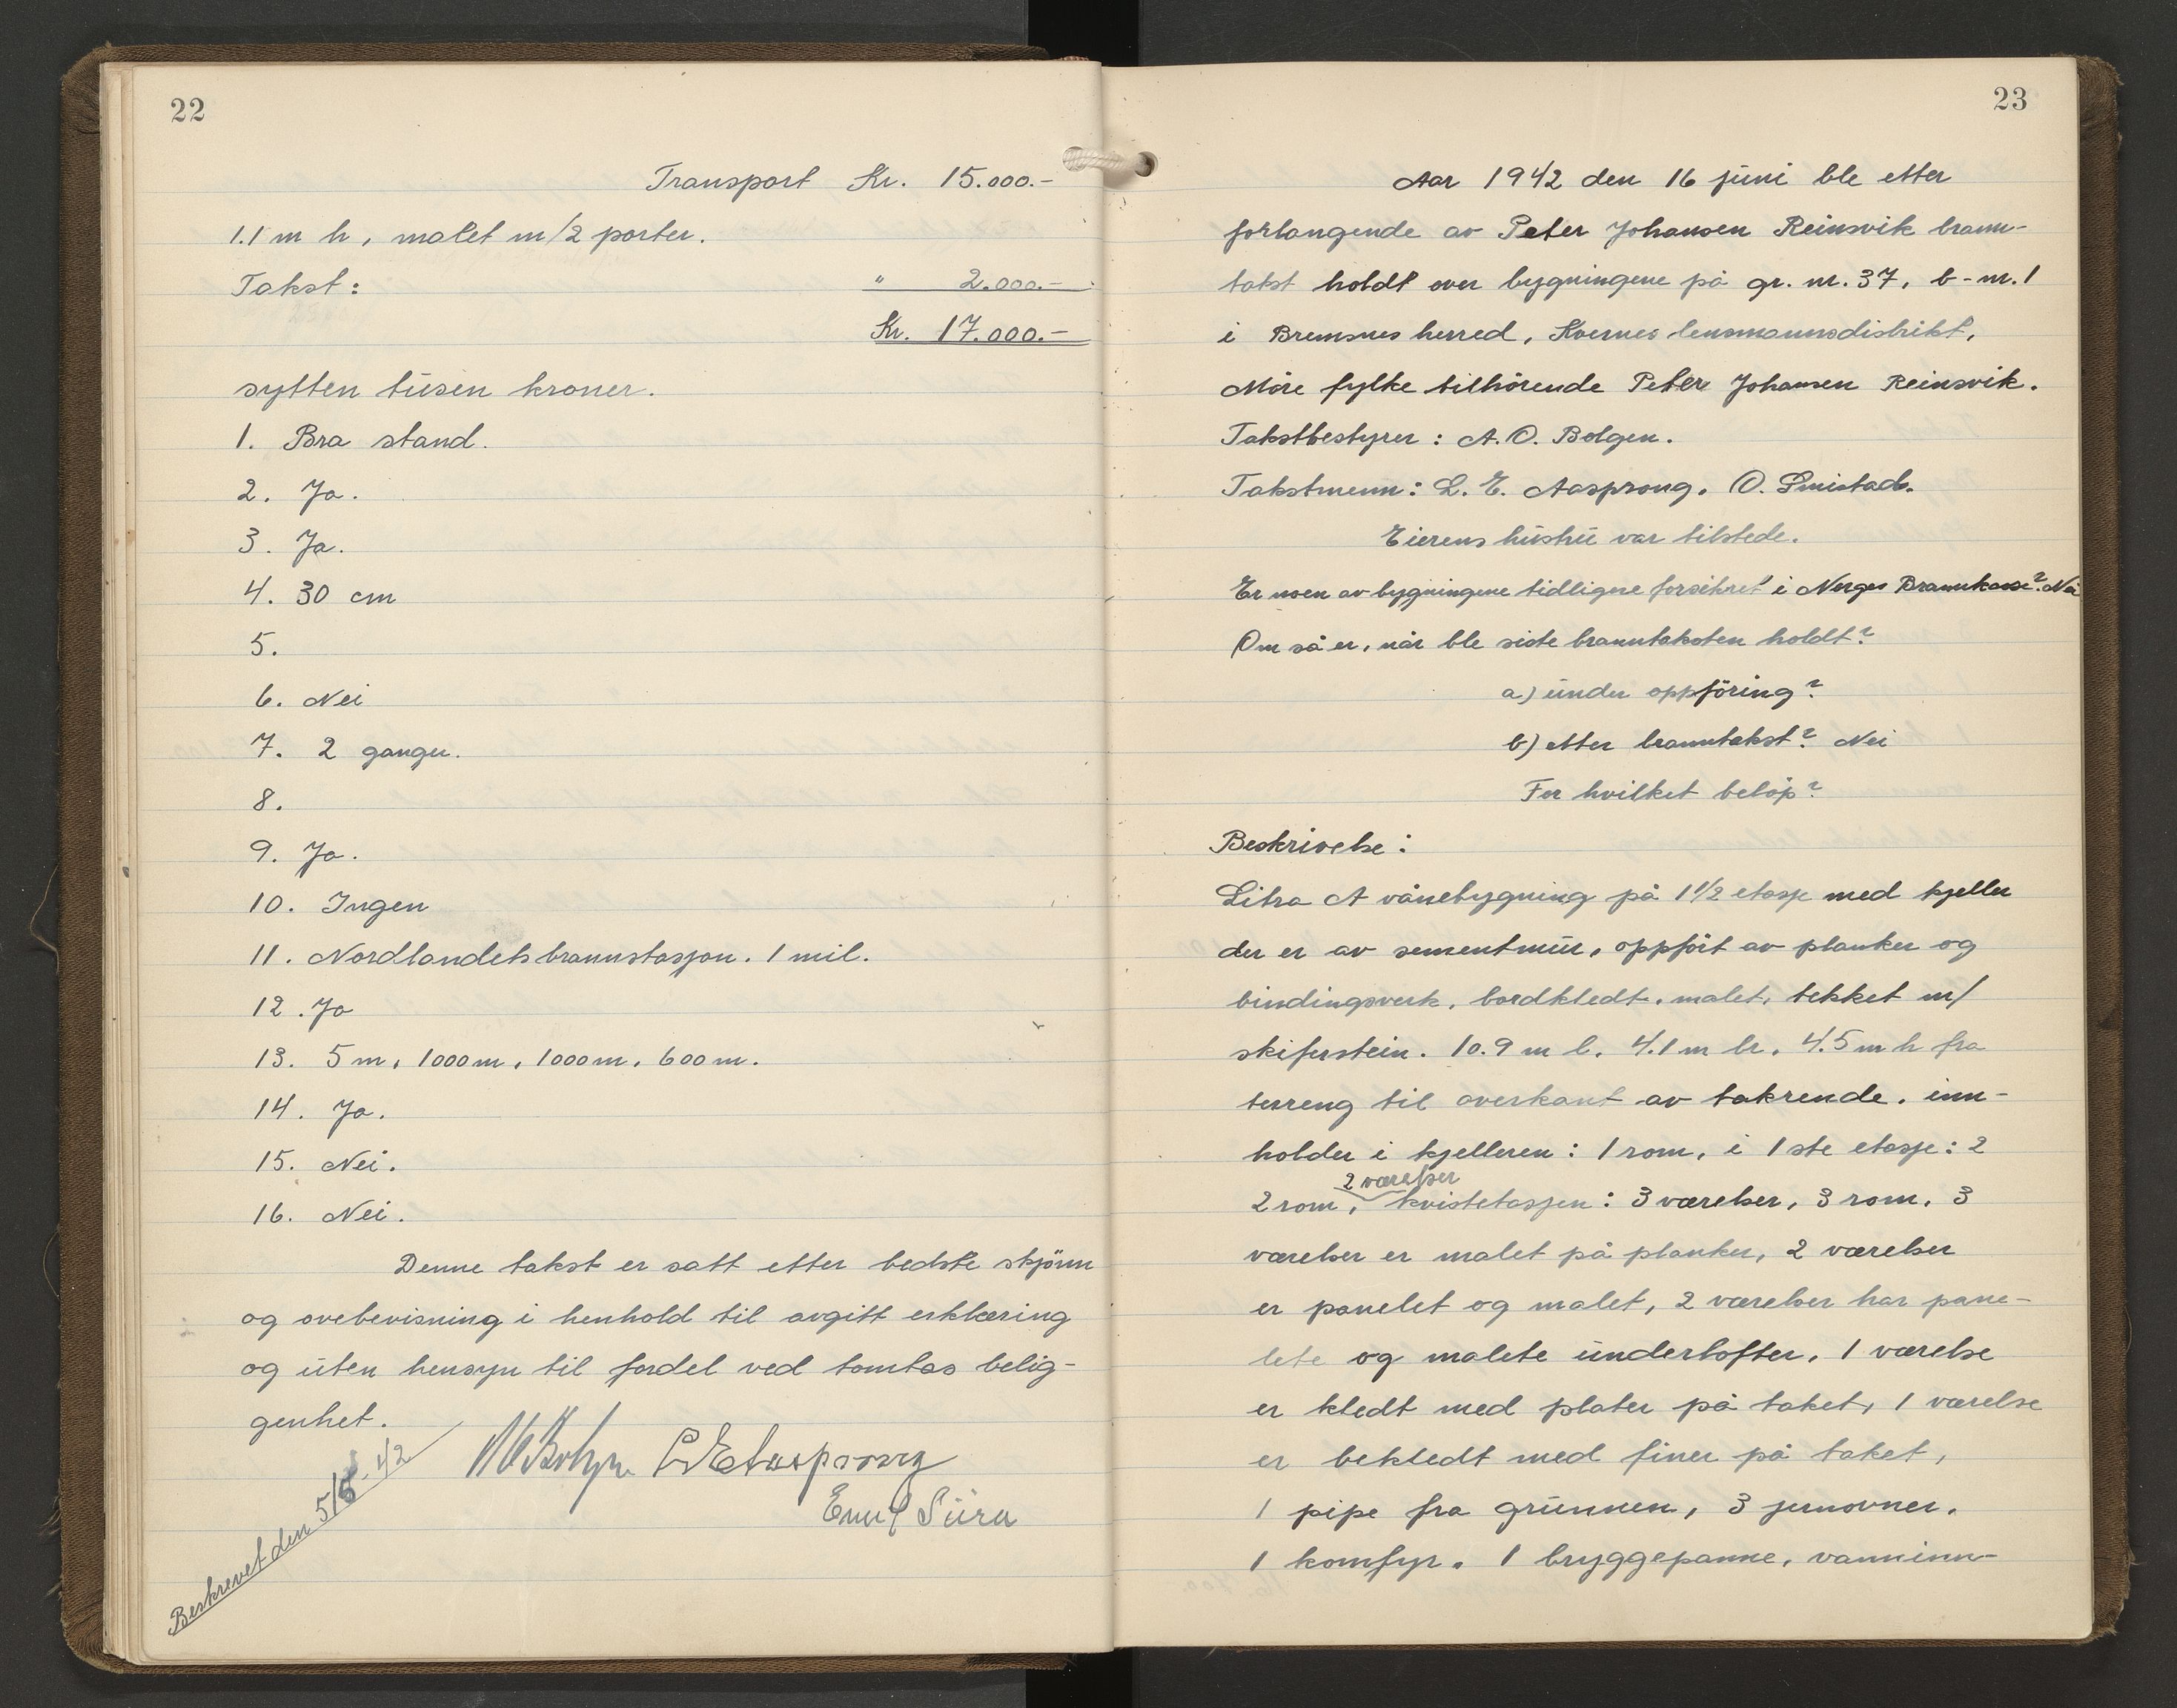 22
Transport Kr. 15.000.-
1.1 m h, malet m/2 porter.
Takst: " 2.000.-
Kr. 17.000.-
sytten tusen kroner.
1. Bra stand.
2. Ja.
3. Ja.
4. 30 cm
5.
6. Nei
7. 2 ganger.
8.
9. Ja.
10. Ingen
11. Nordlandets brannstasjon. 1 mil.
12. Ja
13. 5 m, 1000 m, 1000 m, 600 m.
14. Ja.
15. Nei.
16. Nei.
Denne takst er satt etter bedste skjönn
og ovebevisning i henhold til avgitt erklæring
og uten hensyn til fordel ved tomtas belig-
genhet.
L E Aasprong
Beskrevet den 5/6.42
23
Aar 1942 den 16 juni ble etter
forlangende av Peter Johansen Reinsvik brann-
takst holdt over bygningene på gr. nr. 37, b-nr. 1
i Bremsnes herred, Kvernes lensmannsdistrikt,
Möre fylke tilhörende Peter Johansen Reinsvik.
Takstbestyrer: A. O. Bolgen.
Takstmenn: L. E. Aasprong. O. Smistad.
Eierens hustru var tilstede.
Er noen av bygningene tidligere forsikret i Norges Brannkasse? Nei
Om så er, når ble siste branntaksten holdt?
a) under oppföring?
b) etter branntakst? Nei
For hvilket belöp?
Beskrivelse:
Litra A vånebygning på 1 1/2 etasje med kjeller
der er av sementmur, oppfört av planker og
bindingsverk, bordkledt, malet, tekket m/
skiferstein. 10.9 m l. 4.1 m br. 4.5 m h fra
terreng til overkant av takrende. inn-
holder i kjelleren: 1 rom, i 1ste etasje: 2
2 værelser
2 rom, kvistetasjen: 3 værelser, 3 rom. 3
værelser er malet på planker, 2 værelser
er panelet og malet, 2 værelser har pane-
lete og malete underlofter, 1 værelse
er kledt med plater på taket, 1 værelse
er bekledt med finer på taket,
1 pipe fra grunnen, 3 jernovner,
1 komfyr. 1 bryggepanne, vanninn-